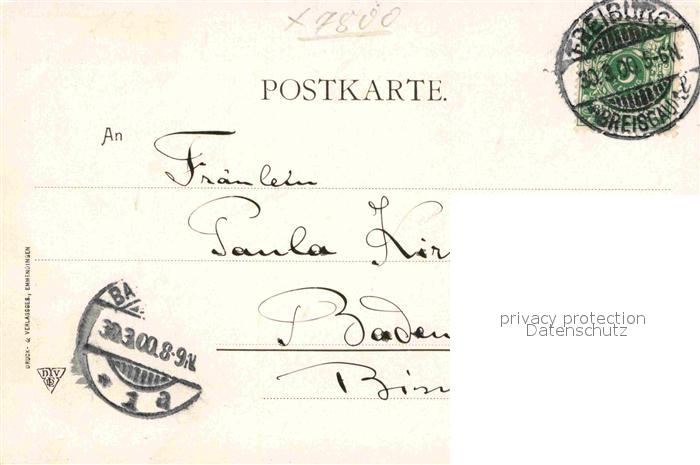 x 7800
FREIBURG
30.3.00.5-6N.
BREISGAU
POSTKARTE.
An
Fräulein
Paula Kir
Baden
Bis
privacy protection
Datenschutz
BA
30.3.00.8-9N.
* 1 a
DRUCK- & VERLAGSGES., EMMENDINGEN
DIV